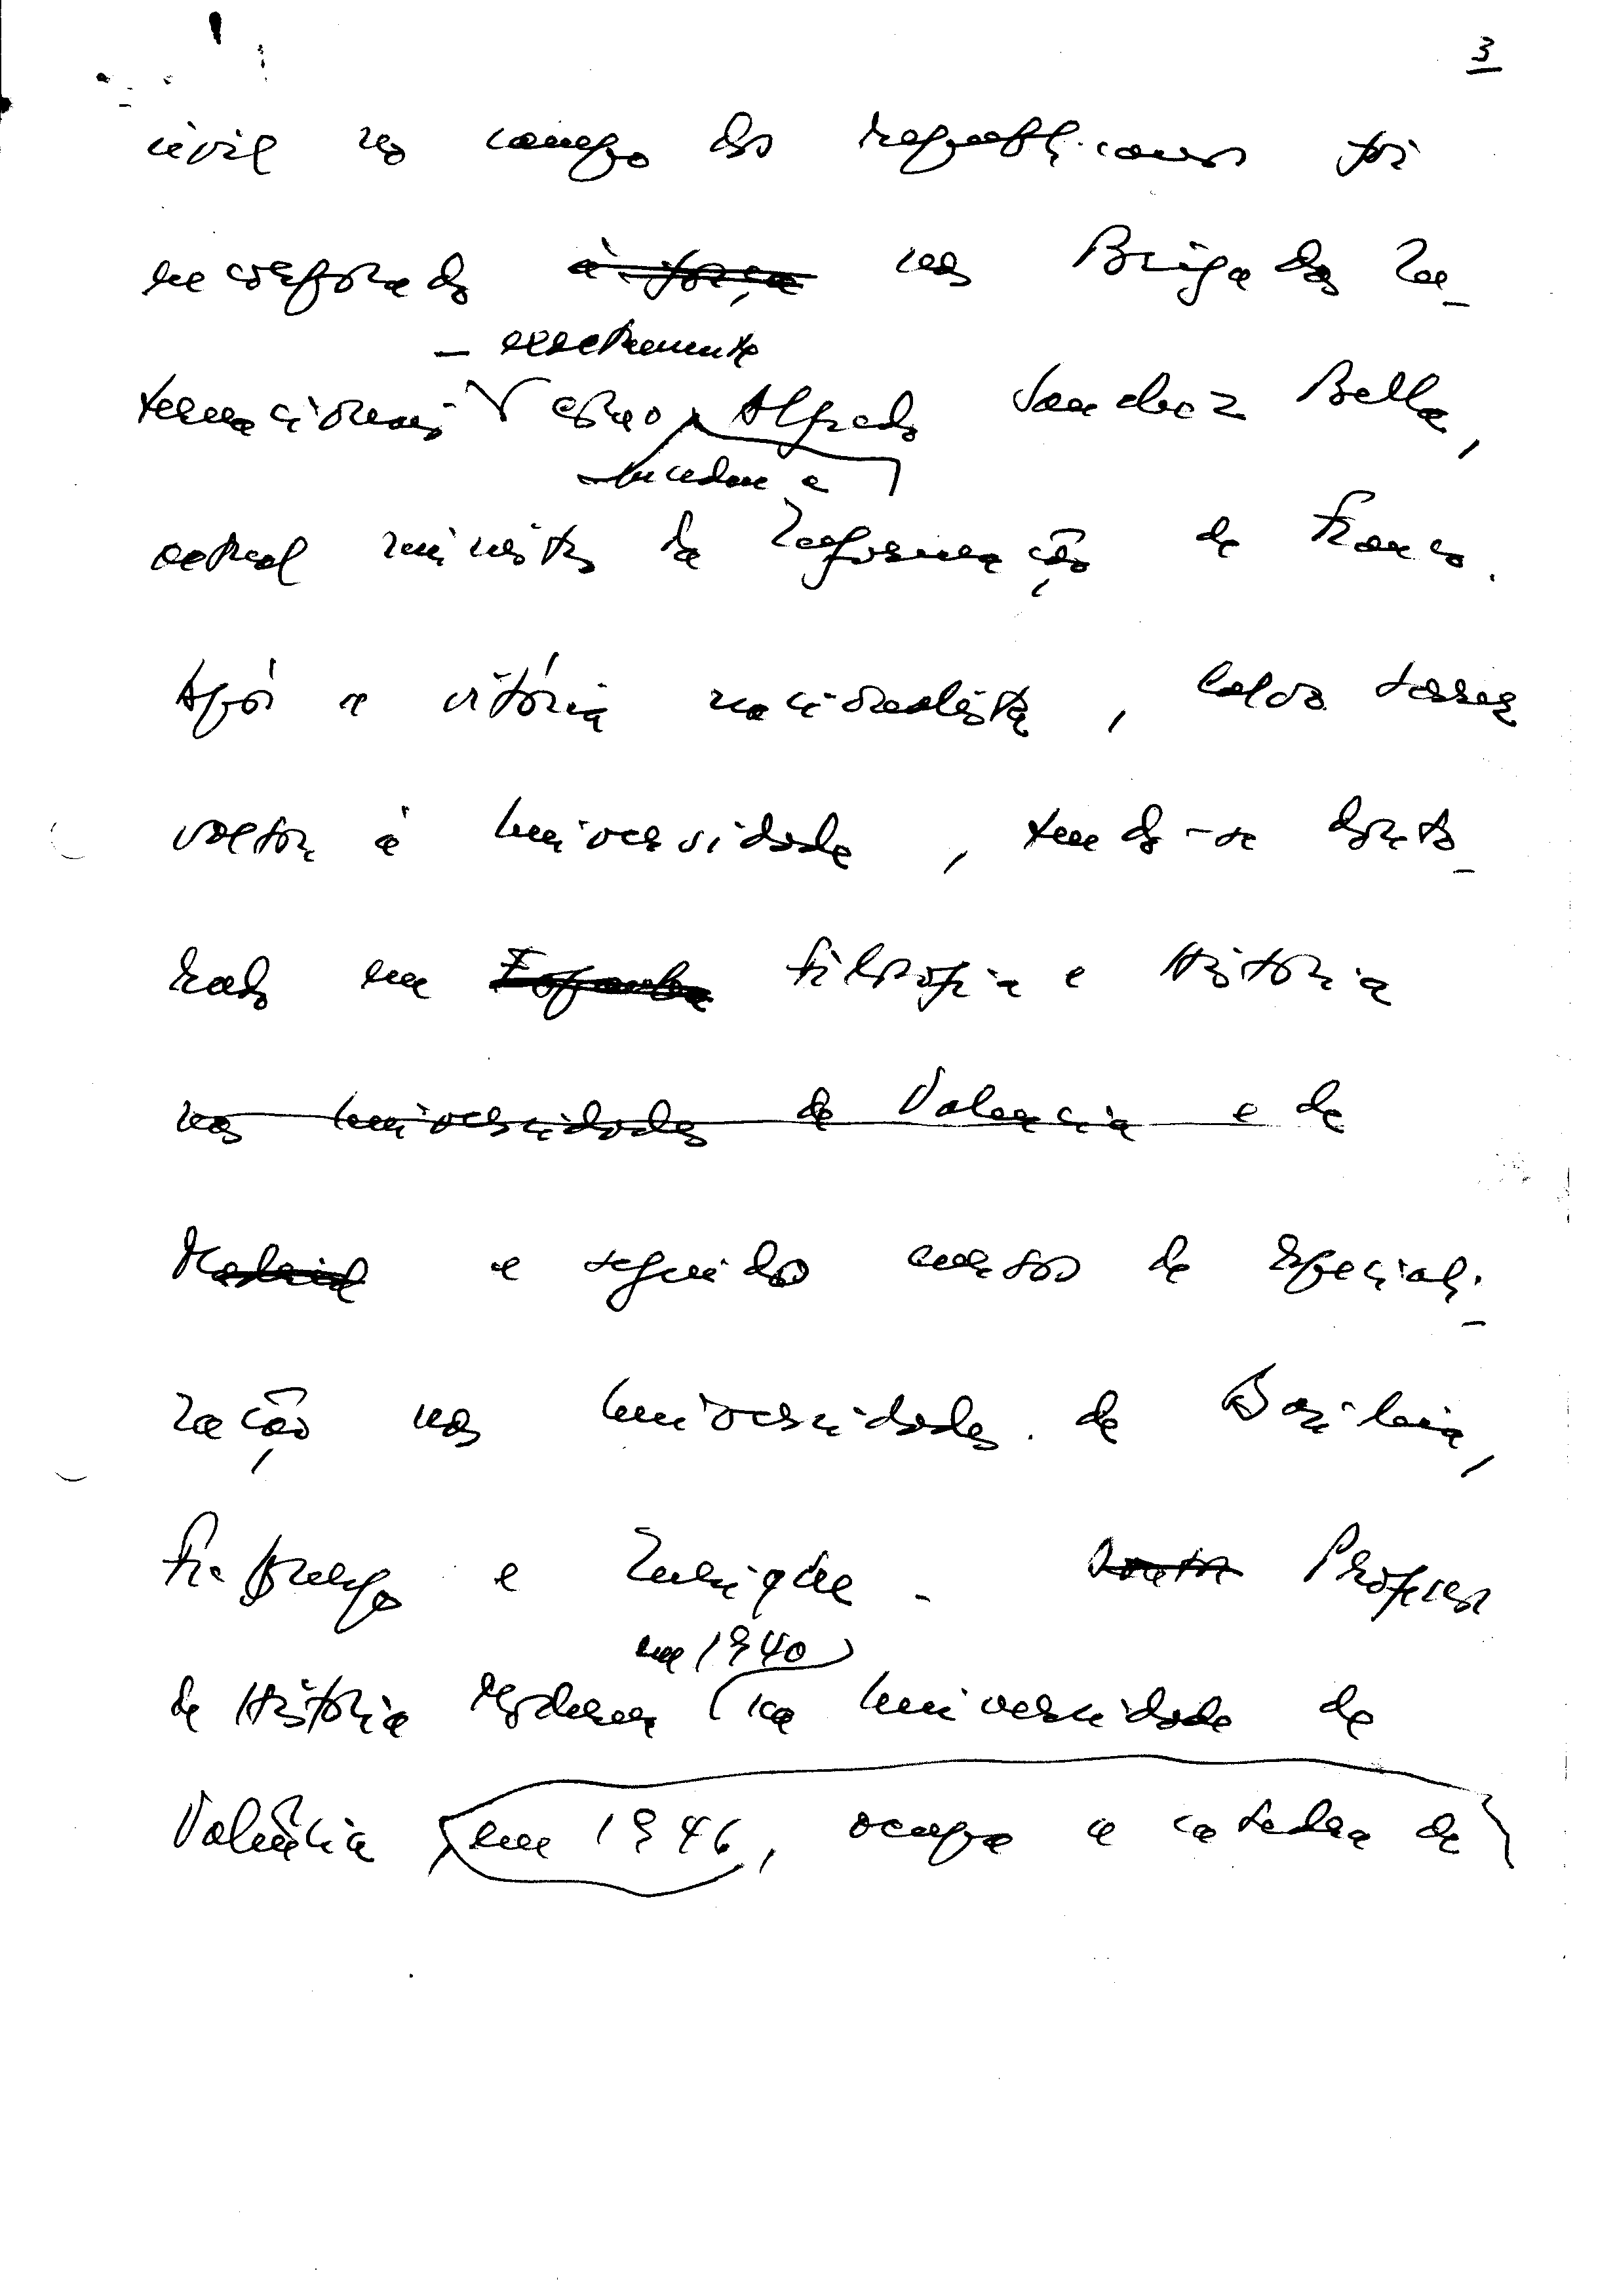 3
civil no campo dos republicanos foi
incorporado à força nas Brigadas In-
— exactamente
ternacionais como Alfredo Sanchez Bella,
sucedeu a
actual ministro da Informação de Franco.
Após a vitória nacionalista, Calvo Serer
voltou à Universidade, tendo-se douto-
rado em Espanha Filosofia e História
nas Universidades de Valencia e de
Madrid e seguido cursos de especiali-
zação nas Universidades de Basileia,
Friburgo e Zurique. Professor
em 1940
de História Moderna na Universidade de
Valência em 1946, ocupa a catedra de